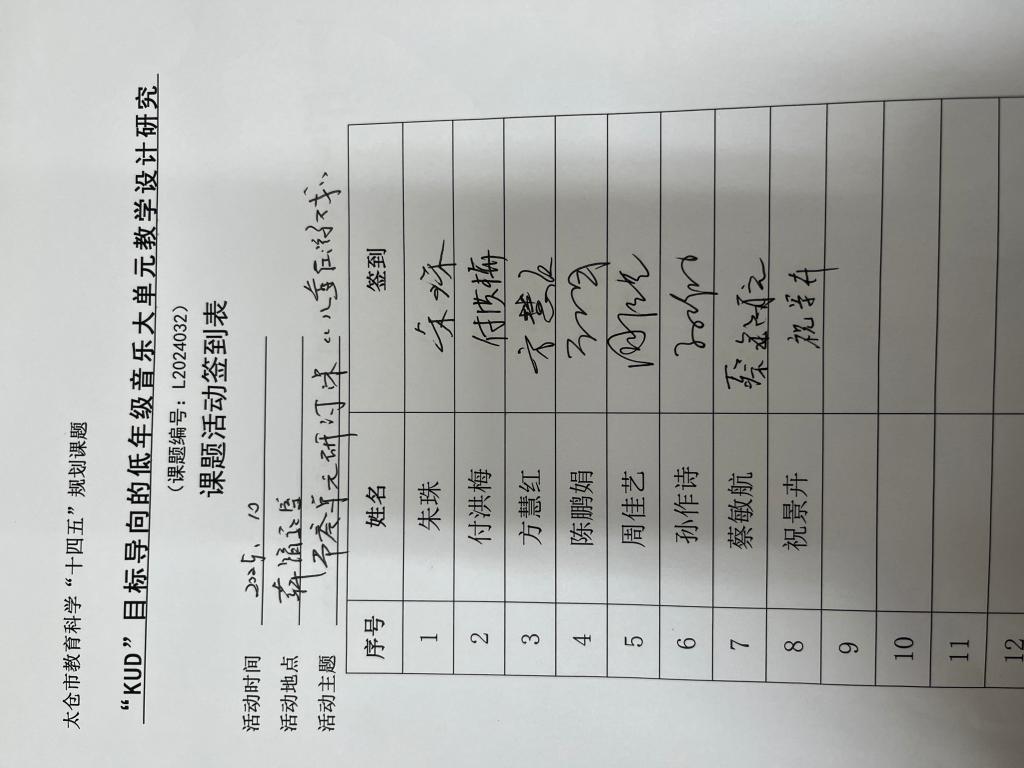 太仓市教育科学“十四五”规划课题
“KUD”目标导向的低年级音乐大单元教学设计研究
（课题编号：L2024032）
课题活动签到表
活动时间 2025.10
活动地点
活动主题 单元研讨课“儿童在游戏”
序号 姓名 签到
1 朱珠 朱珠
2 付洪梅 付洪梅
3 方慧红 方慧红
4 陈鹏娟
5 周佳艺 周佳艺
6 孙作诗
7 蔡敏航 蔡敏航
8 祝景卉 祝景卉
9
10
11
12